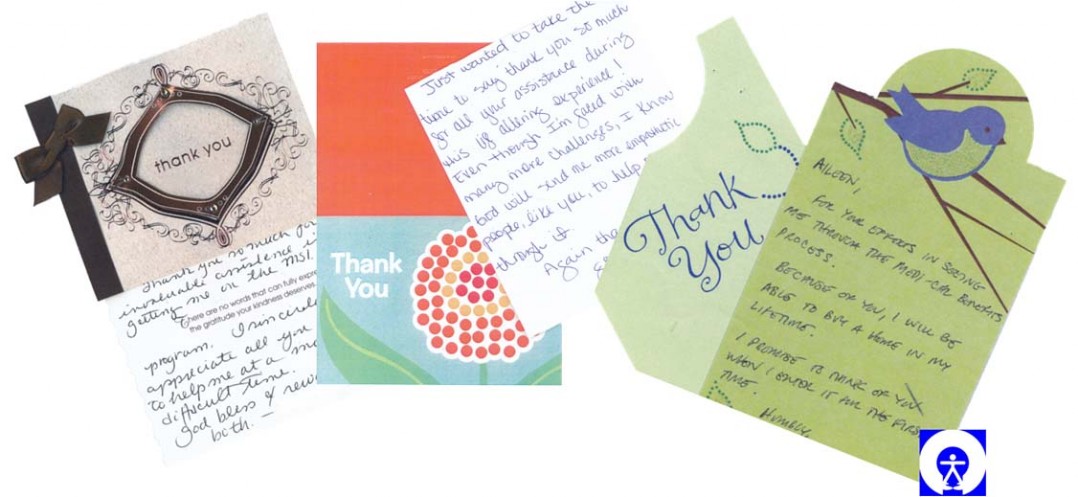 thank you
Thank you so much for
invaluable assistance i
getting me on the MSI
There are no words that can fully expre
the gratitude your kindness deserves.
program. I sincerel
appreciate all you
to help me at a mo
difficult time.
god bless & rew
both.
Thank
You
Just wanted to take the
time to say thank you so much
for all your assistance during
this life altering experience!
Even though I'm faced with
many more challenges, I know
God will send me more empathetic
people, like you, to help
through it
Again tha
Thank
You
AILEEN,
FOR YOUR EFFORTS IN SEEING
ME THROUGH THE MEDI-CAL BENEFITS
PROCESS.
BECAUSE OF YOU, I WILL BE
ABLE TO BUY A HOME IN MY
LIFETIME.
I PROMISE TO THINK OF YOU
WHEN I ENTER IT FOR THE FIRS
TIME.
HUMBLY,